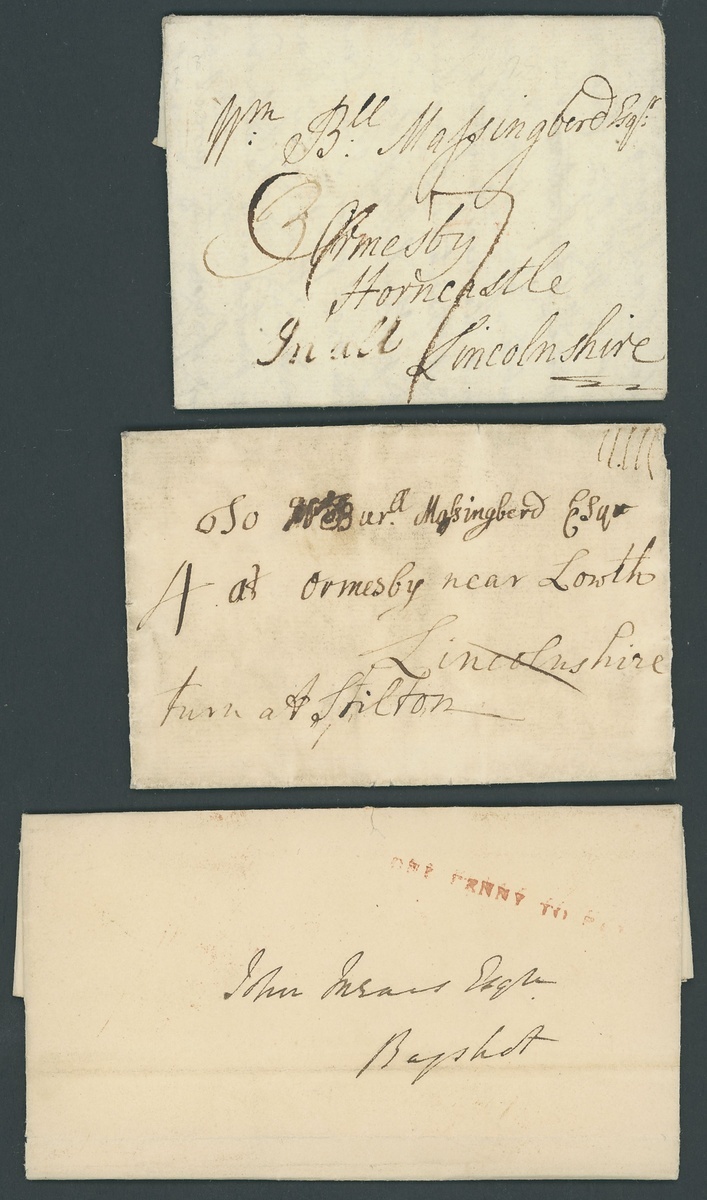 Wm. B.ll Massingberd Esqr.
3 Ormesby 7
Horncastle
In all Lincolnshire
To Burll Massingberd Esqr
4 at ormesby near Lowth
Lincolnshire
turn at Stilton
PENNY TO
John Esqre
Bagshot